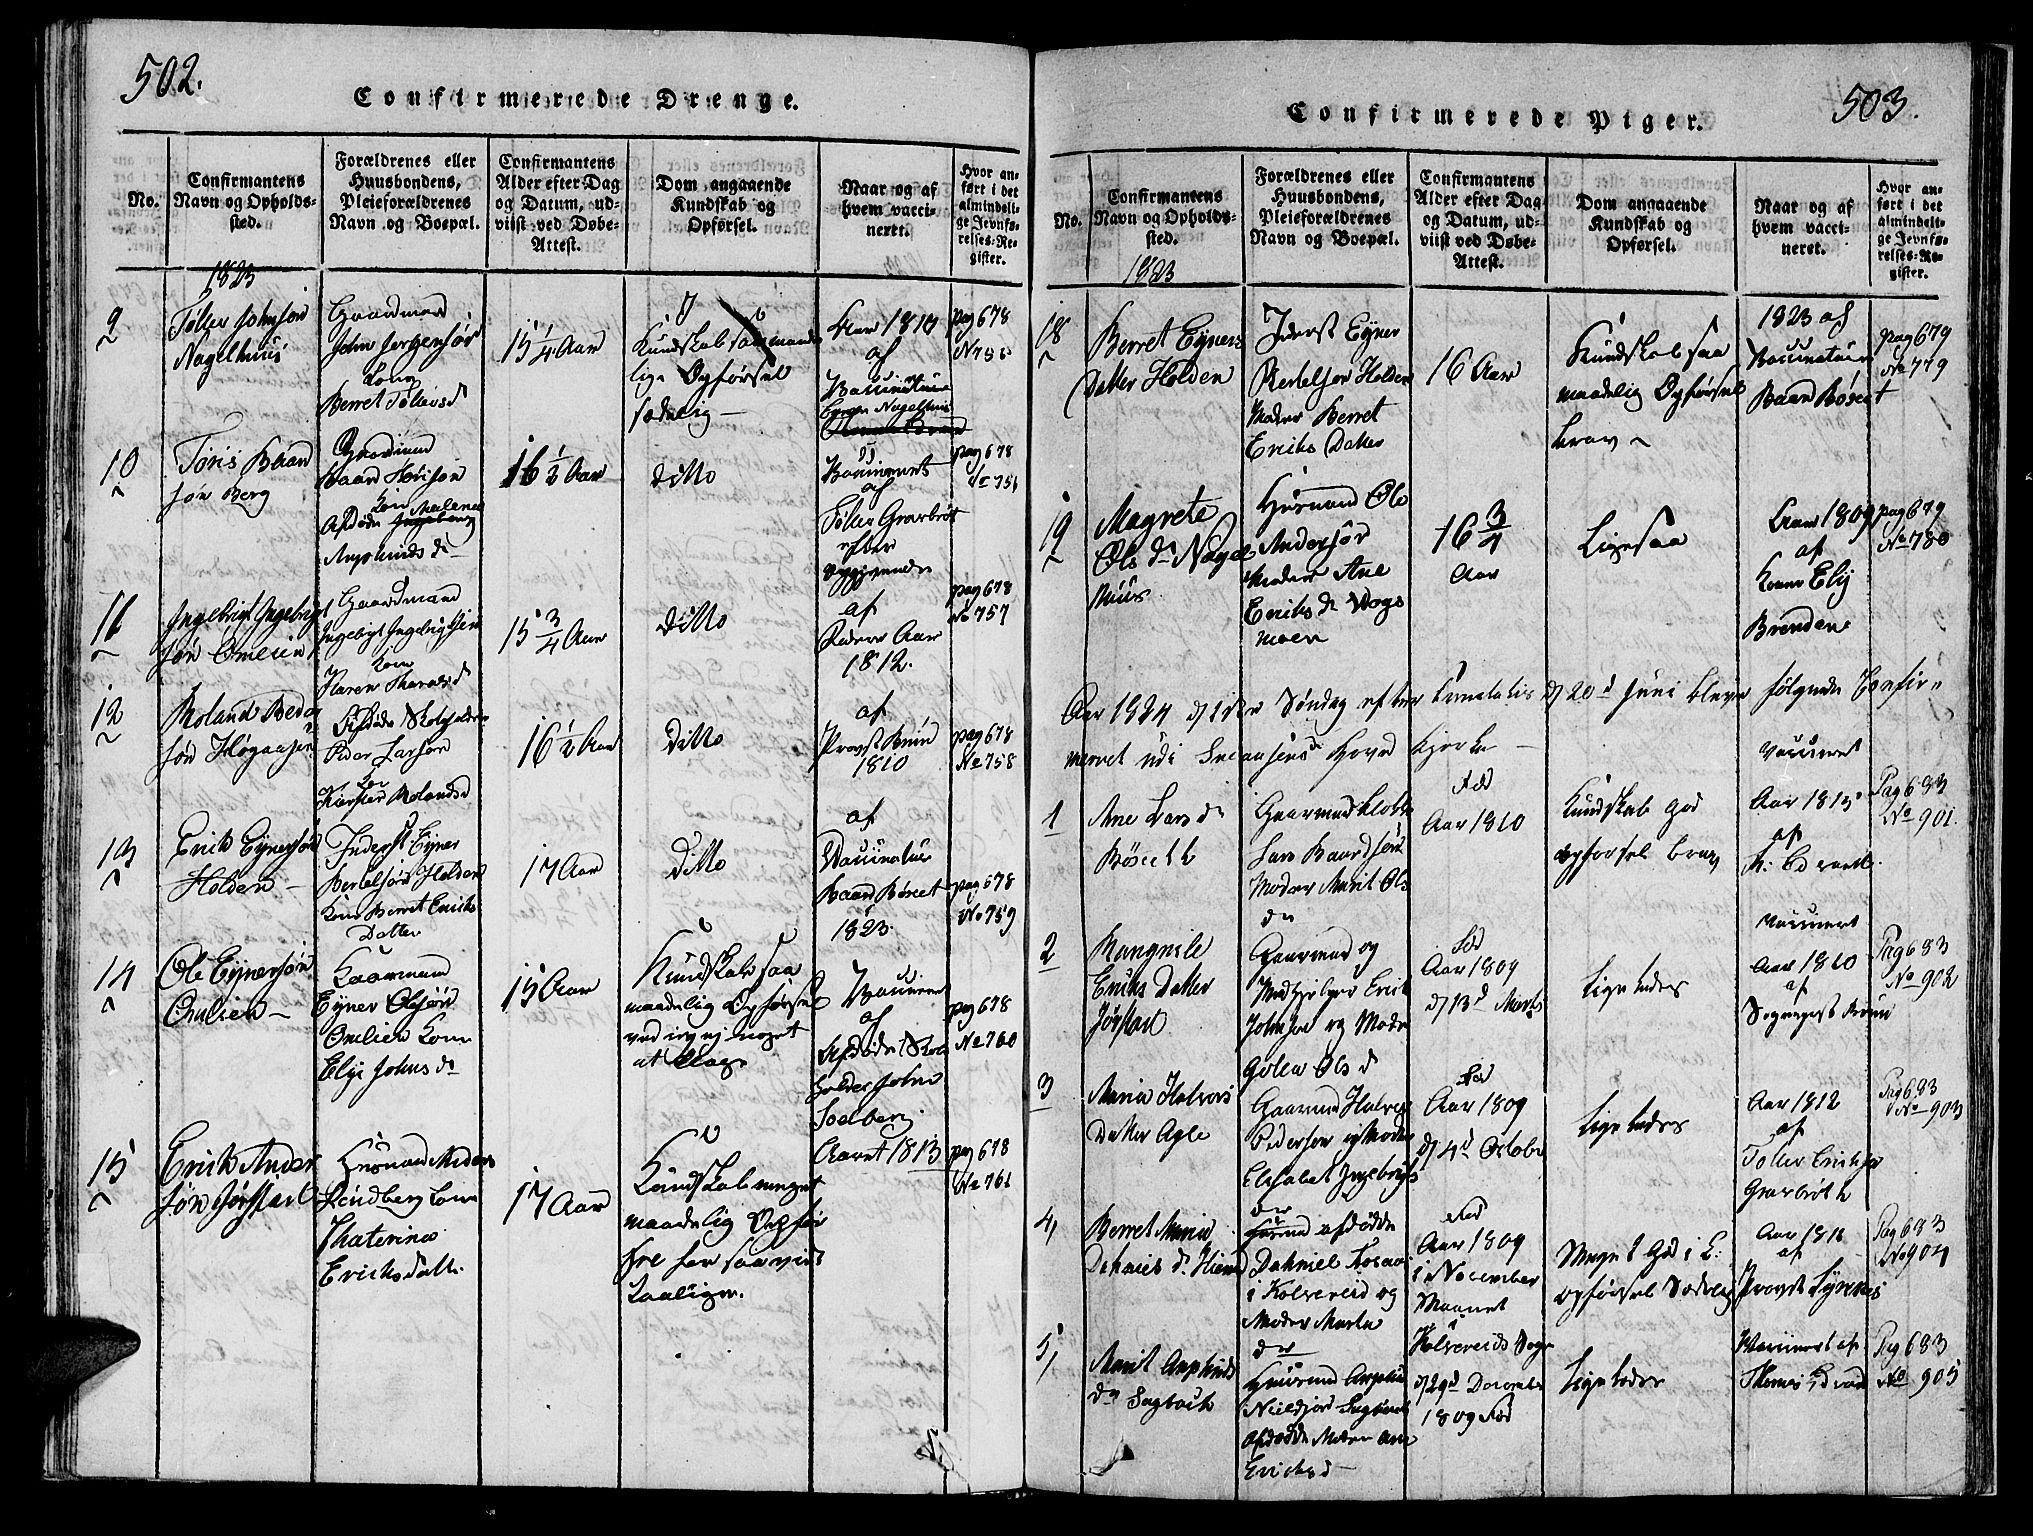 502.
Confirmerede Drenge.
No.
Confirmantens
Navn og Opholds-
sted.
Forældrenes eller
Huusbondens,
Pleieforældrenes
Navn og Boepæl.
Confirmantens
Alder efter Dag
og Datum, ud-
viist ved Døbe-
Attest.
Dom angaaende
Kundskab og
Opførsel.
Naar og af
hvem vacci-
neret.
Hvor an-
ført i det
almindeli-
ge Jevnfø-
relses-Re-
gister.
1823
9
Toller Johnsøn
Nagelhuus
Gaardmand
John Jørgensøn
Kone
Berret Tollevsd
15 1/4 Aar
Kundskab saa maade-
lig Opførsel
sædelig
Aar 1814
af
Vaccinateur
pag 678
10
Toris Baar
søn Berg
Gaardmand
Kone Malene
Arnphinds d
16 1/2 Aar
ditto
Vaccineret
af
Toller Grarbrøt
efter
opgivende
pag 678
11
Ingebrigt Ingebrigt
søn Omlien
Gaardmand
Ingebrigt Ingebrigtsen
Kone
Karen Tharalsd
15 3/4 Aar
ditto
af
Faderen Aar
1812.
pag 678
No 757
12
Roland Peder
søn
Afdøde
Peder Larsøn
Kirsten Rolandsd
16 1/2 Aar
ditto
af
Provst Bruun
1810
pag 678
No 758
13
Erik Eynersøn
Holden
Inderst Eyner
Bertelsøn Holden
Kone Berret Eriks
Datter
17 Aar
ditto
af
Vaccinateur
Baar Bøset
1823.
pag 678
No 759
14
Ole Eynersøn
Omlien
Gaarmand
Eyner Olsøn
Omlien Kone
Elje Johns d
15 Aar
Kundskab saa
maadelig Opførsel
ved ieg ej noget
at klage
Vaccineret
af
Afdøde Skole
holder John
Soelberg.
pag 678
No 760
15
Erich Ander
søn Jørstad
Huusmand Anders
Lindberg Kone
Khaterina
Erichsdatter
17 Aar
Kundskab meget
maadelig Opfør
sel for saavidt
taalig.
Aaret 1813
pag 678
No 761
503.
Confirmerede Piger.
No.
Confirmantens
Navn og Opholds-
sted.
Forældrenes eller
Huusbondens,
Pleieforældrenes
Navn og Boepæl.
Confirmantens
Alder efter Dag
og Datum, ud-
viist ved Døbe-
Attest.
Dom angaaende
Kundskab og
Opførsel.
Naar og af
hvem vacci-
neret.
Hvor an-
ført i det
almindeli-
ge Jevnfø-
relses-Re-
gister.
1823
18
Berret Eyners
Datter Holden
Inderst Eyner
Bertelsøn Holden
Moder Berret
Eriks Datter
16 Aar
Kundskab saa
maadelig Opførsel
brav
1823 af
Vaccinateur
Baar Bøset
pag 679
No 779
19
Magrete
Ols d. Nagel
huus
Huusmand Ole
Andersøn
Moder Ane
Eriks d Vogs
moen
16 3/4
Aar
Ligesaa
Aar 1809
af
Kone Elij
Brenden
pag 679
No 780
Aar 1824 d 1ste Søndag efter Trinitatis d 20d Juni bleve følgende Confir-
meret udi Snaasens Hoved Kjerke
1
Ane Lars d
Bøset
Gaarmand
Lars Baardsøn
Moder Marit Ols
d
Fød
Aar 1810
Kundskab god
opførsel brav
Vaccineret
Aar 1813
af
Pag 683
No 901.
2
Rangnile
Eriks Datter
Jørstad
Gaarmand og
Medhjelper Erik
Johnsen og Moder
Golen Ols d
Fød
Aar 1809
d 13d Marts
Ligeledes
Vaccineret
Aar 1810
af
Sogneprest Bruun
Pag 683
No 902
3
Maria Halvors
Datter Agle
Gaarmand Halvor
Pedersen og Moder
Elisabet Ingebrigts
d
Fød
Aar 1809
d 4d October
Ligeledes
Aar 1812
af
Toller Eriksen
Grarbrøt
Pag 683
No 903
4,
Berret Maria
afdødde
i Kolvereid og
Moder Marta
Fød
Aar 1809
i November
Maanet
i
Kolvereids Sogn
Meget God i C:
opførsel Sædelig
Aar 1811
af
Provst
Pag 683
No 904
5,
Marit Arnphinds
d
Huusmand Arnphin
Afdødde Moder Ane
Erichsd
d 29d December
1809 Fød
Ligeledes
Vaccineret af
Thomas Edvard
Pag 683
No 905